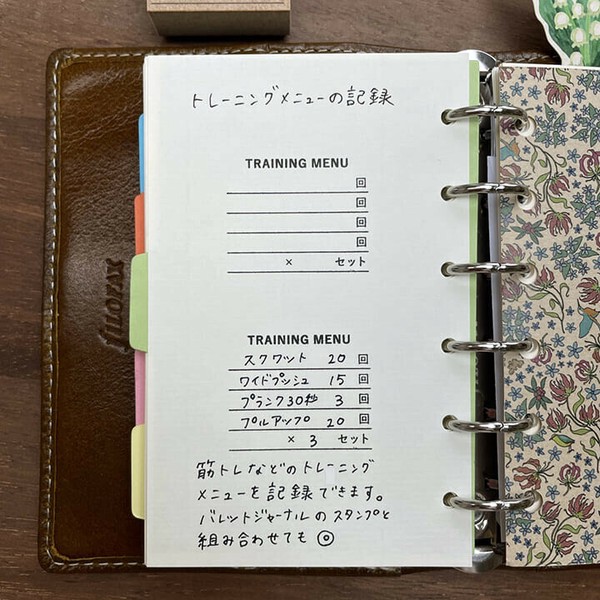 トレーニングメニューの記録
TRAINING MENU
回
回
回
回
× セット
filofax
TRAINING MENU
スクワット 20 回
ワイドプッシュ 15 回
プランク30秒 3 回
プルアップ 20 回
× 3 セット
筋トレなどのトレーニング
メニューを記録できます。
バレットジャーナルのスタンプと
組み合わせても◎